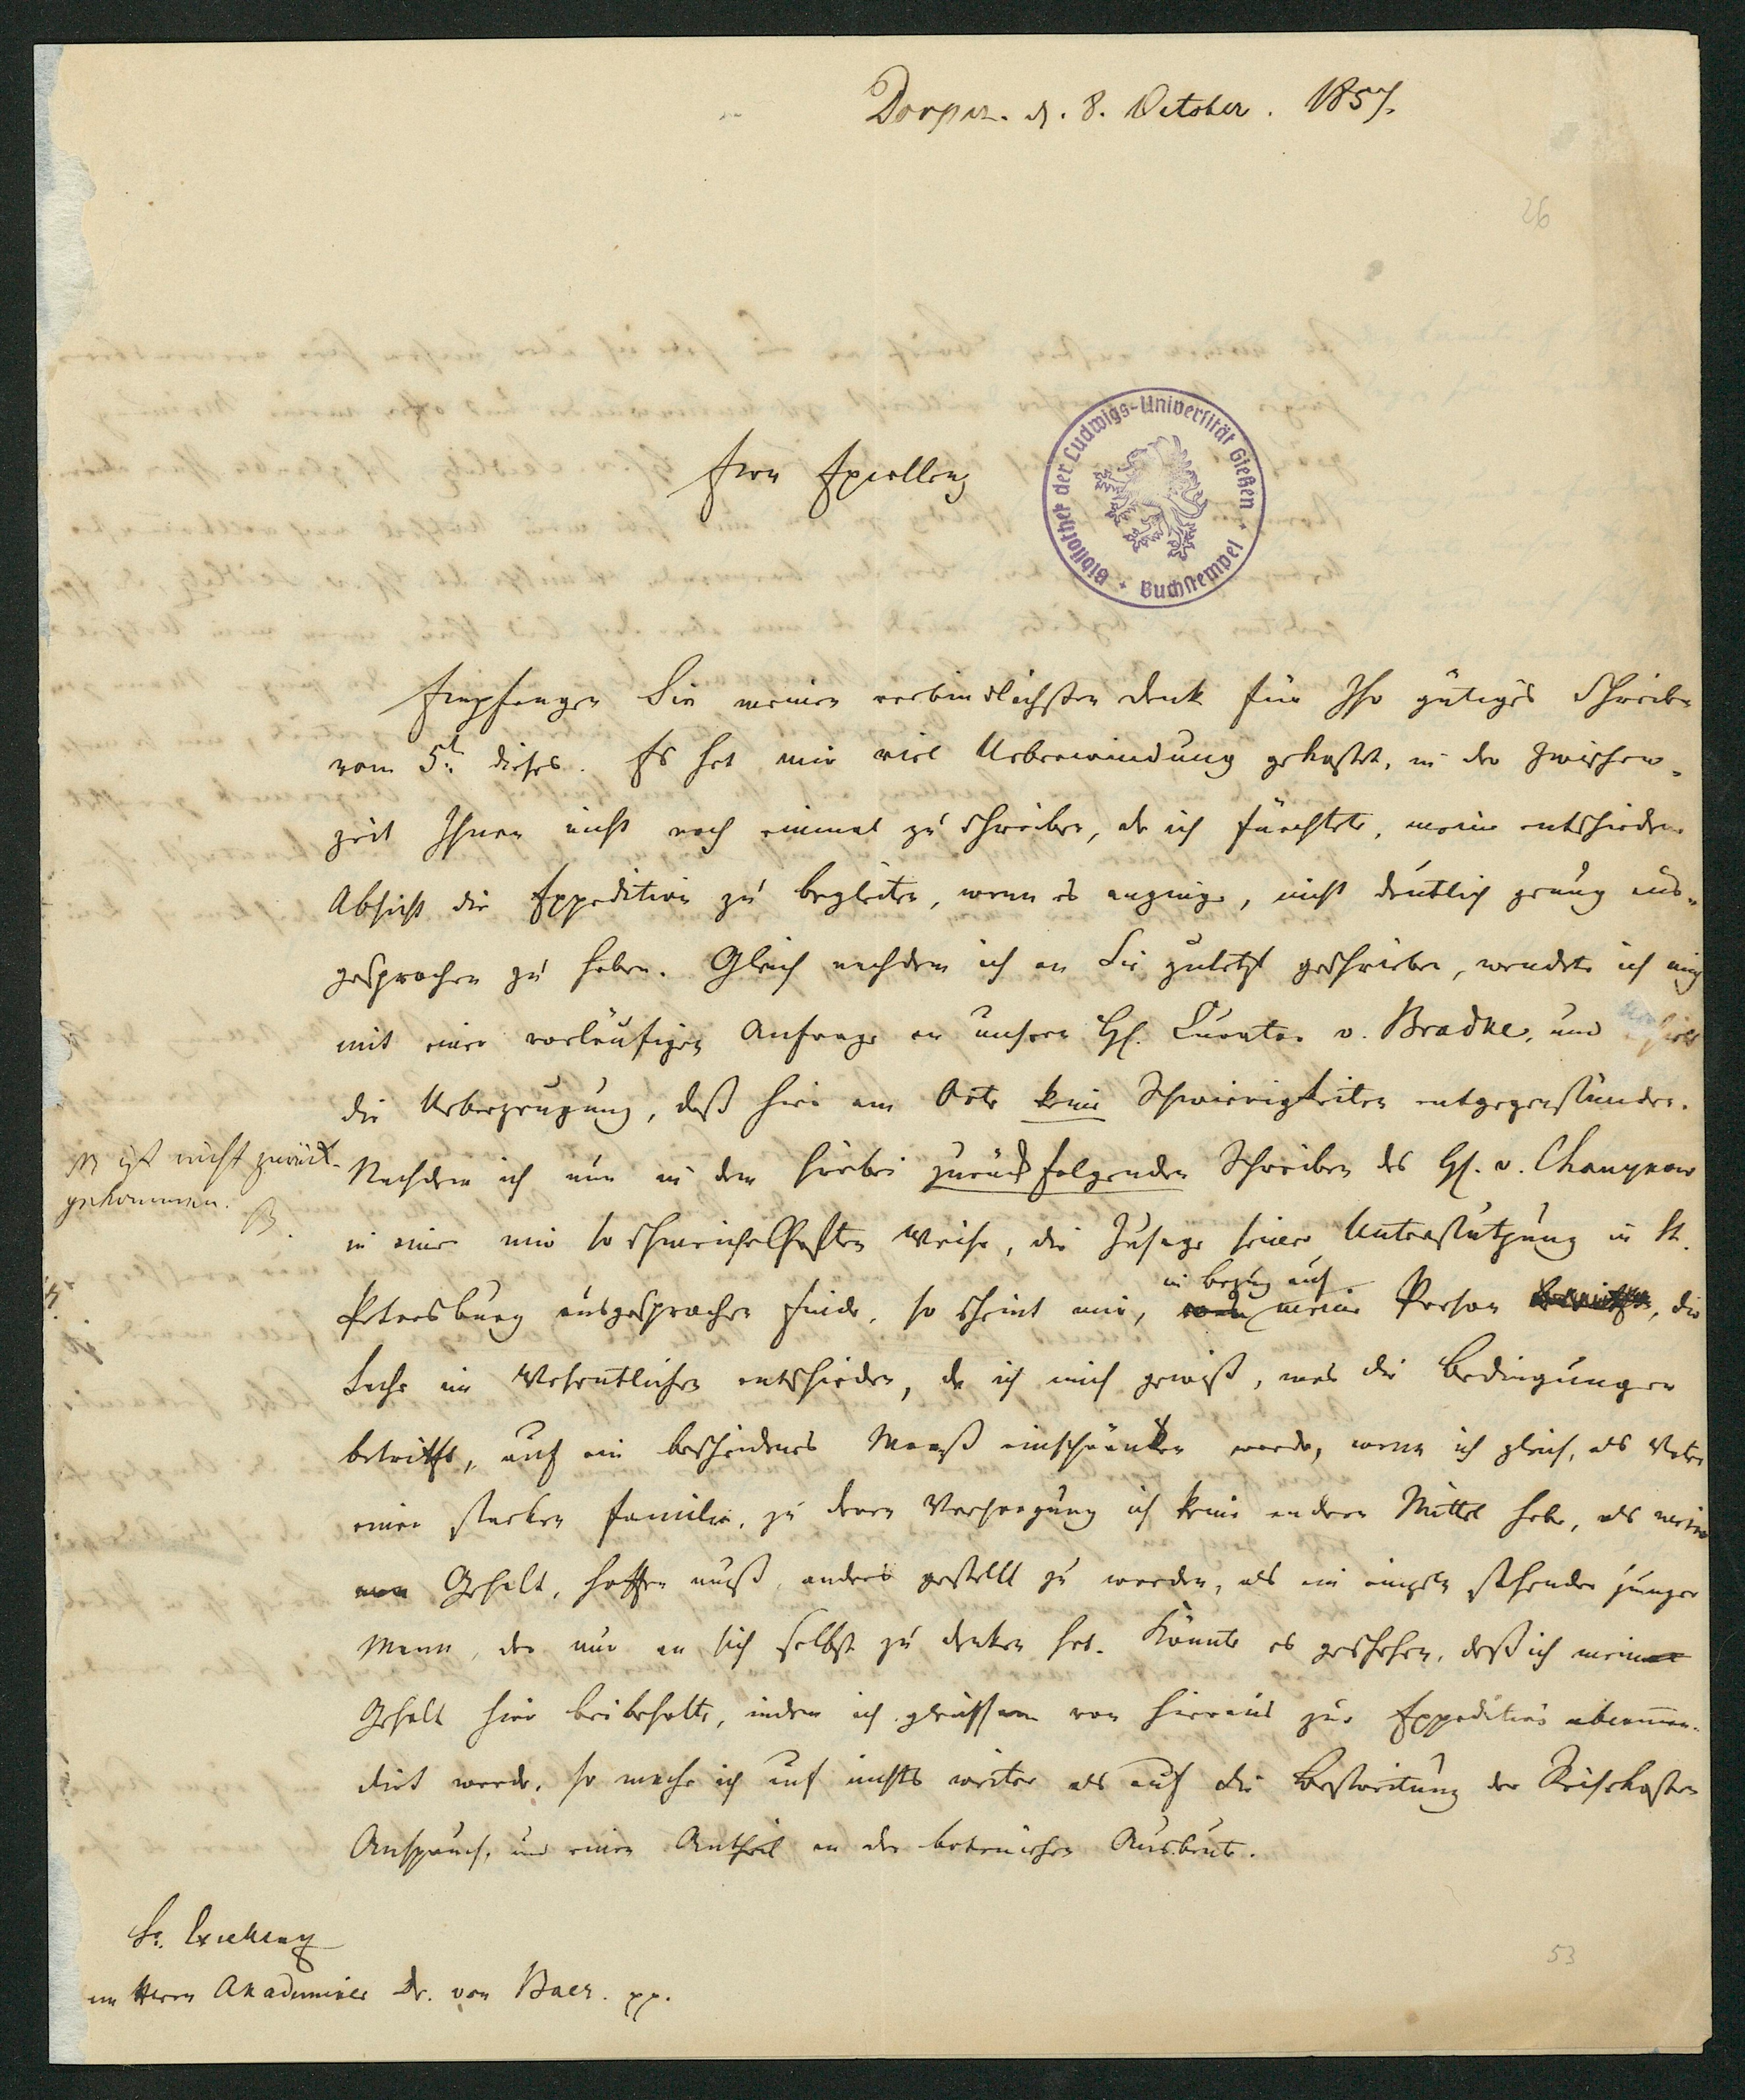 Dorpat. d. 8. October. 1857.
26
Eure Excellenz
Bibliothek der Ludwigs-Universität Gießen · Buchstempel ·
Empfangen Sie meinen verbindlichsten Dank für Ihr gütiges Schreiben
vom 5t. dieses. Es hat mir viel Ueberwindung gekostet, in der Zwischen-
zeit Ihnen nicht noch einmal zu schreiben, da ich fürchtete, meine entschiedene
Absicht die Expedition zu begleiten, wenn es anginge, nicht deutlich genug aus-
gesprochen zu haben. Gleich nachdem ich an Sie zuletzt geschrieben, wendete ich mich
mit einer vorläufigen Anfrage an unsern H. Curator v. Bradke, und erhielt
die Ueberzeugung, daß hier am Orte keine Schwierigkeiten entgegenstünden.
Nachdem ich nun in dem hierbei zurückfolgenden Schreiben des H. v. Chanykow
in einer mir so schmeichelhaften Weise, die Zusage seiner Unterstützung in St.
Petersburg ausgesprochen finde, so scheint mir, in bezug auf meine Person, die
Sache im Wesentlichen entschieden, da ich mich gewiß, was die Bedingungen
betrifft, auf ein bescheidenes Maaß einschränken werde, wenn ich gleich, als Vater
einer starken Familie, zu deren Versorgung ich keine andern Mittel habe, als meinen
Gehalt, hoffen muß, anders gestellt zu werden, als ein einzeln stehender junger
Mann, der nur an sich selbst zu denken hat. Könnte es geschehen, daß ich meinen
Gehalt hier beibehalte, indem ich gleichsam von hieraus zur Expedition abcomman-
dirt werde, so mache ich auf nichts weiter als auf die Bestreitung der Reisekosten
Anspruch, und einen Antheil an der botanischen Ausbeute.
ist nicht zurück-
gekommen.
B.
Sr. Excellenz
dem Herrn Akademiker Dr. von Baer. pp.
53